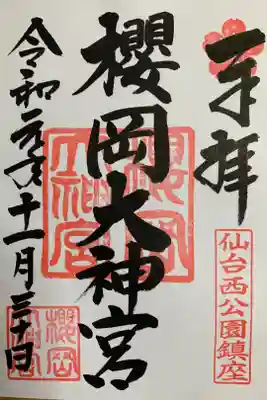 奉拝
仙台西公園鎮座
櫻岡大神宮
櫻岡大神宮
令和元年十一月三十日